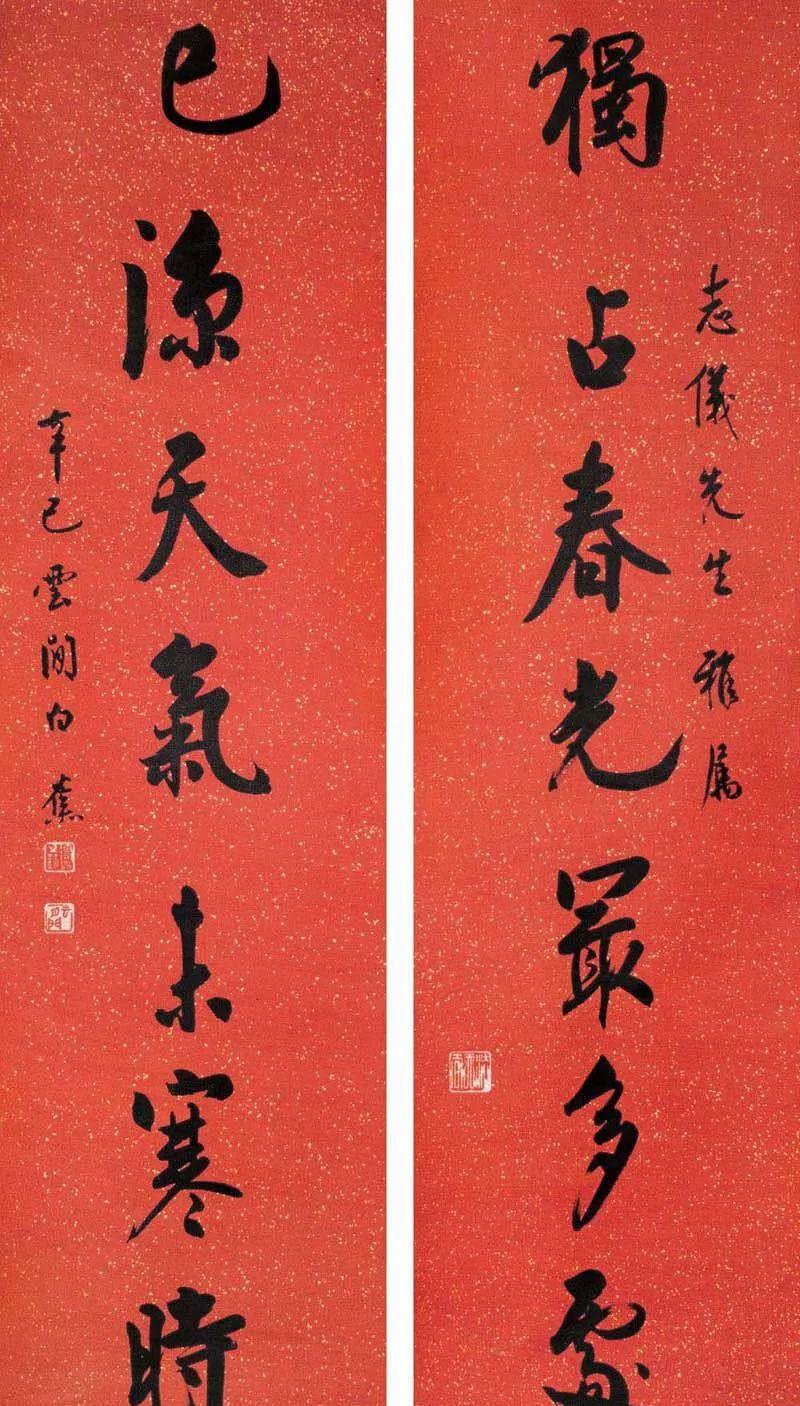 獨占春光最多處
志儀先生雅属
已涼天氣未寒時
辛巳雲間白蕉